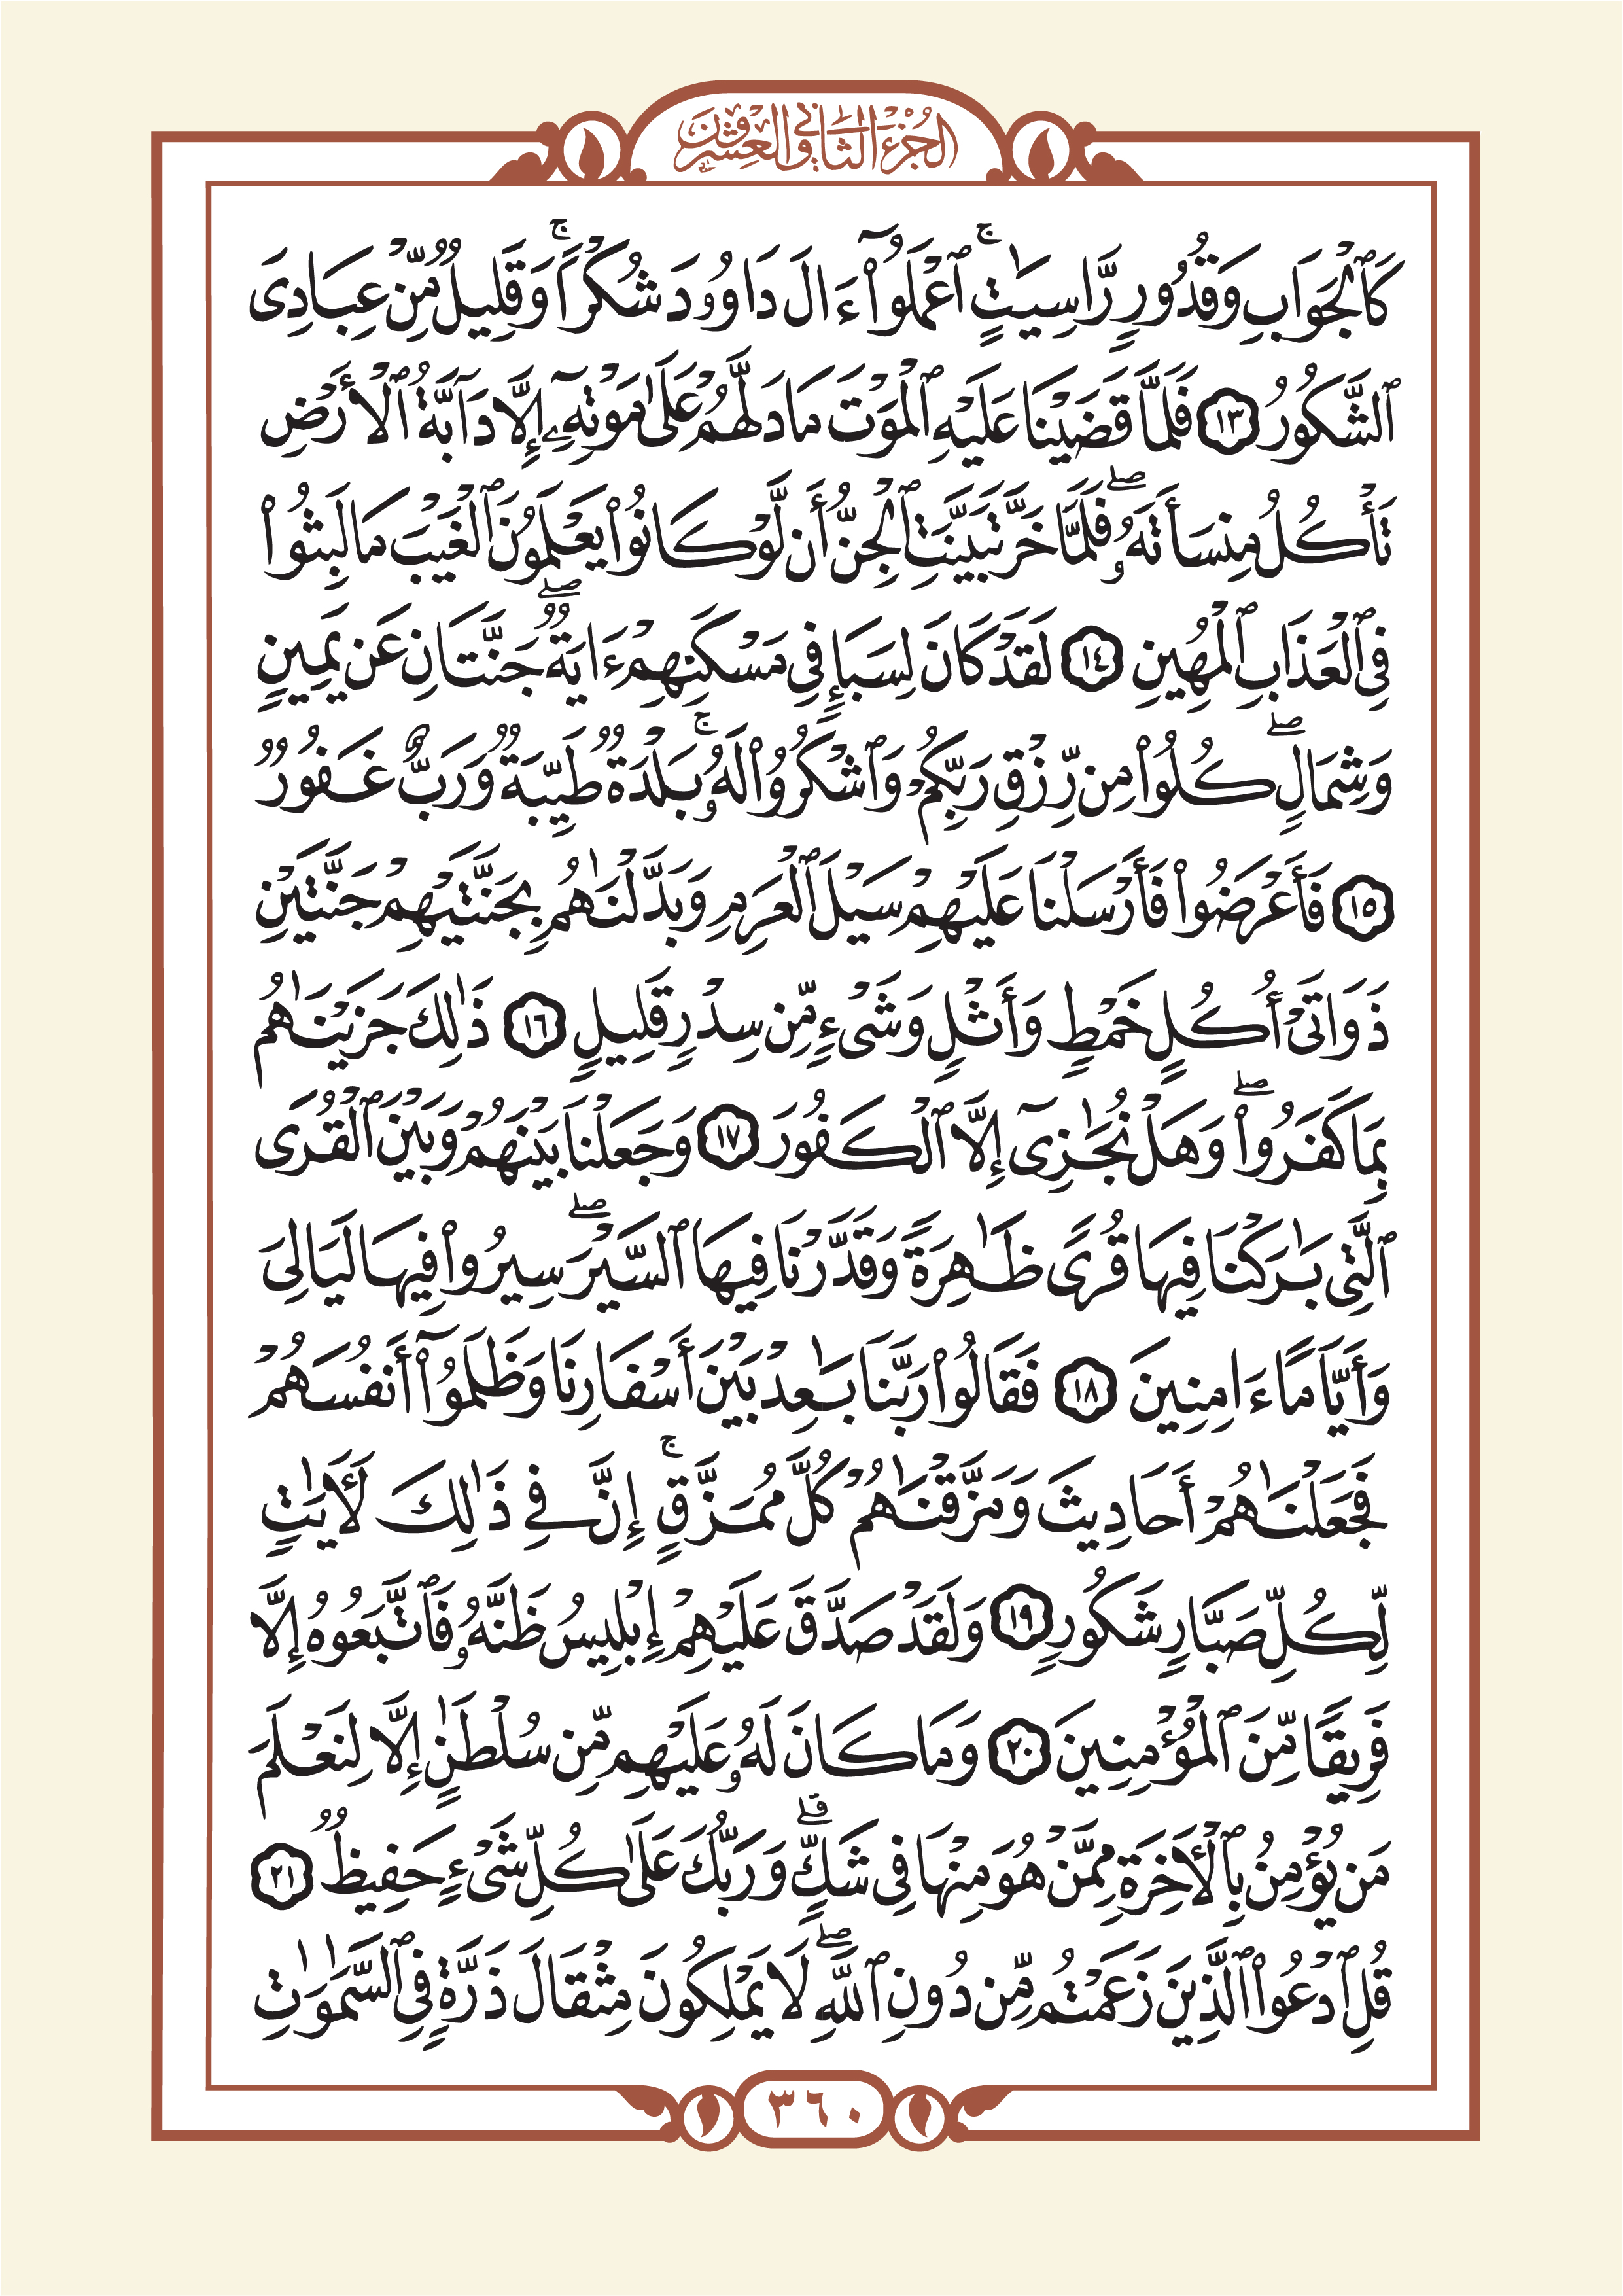 الجزء الثاني والعشرون
كَٱلْجَوَابِ وَقُدُورٍ رَّاسِيَٰتٍ ۚ ٱعْمَلُوٓا۟ ءَالَ دَاوُۥدَ شُكْرًا ۚ وَقَلِيلٌ مِّنْ عِبَادِىَ
ٱلشَّكُورُ ١٣ فَلَمَّا قَضَيْنَا عَلَيْهِ ٱلْمَوْتَ مَا دَلَّهُمْ عَلَىٰ مَوْتِهِۦٓ إِلَّا دَآبَّةُ ٱلْأَرْضِ
تَأْكُلُ مِنسَأَتَهُۥ ۖ فَلَمَّا خَرَّ تَبَيَّنَتِ ٱلْجِنُّ أَن لَّوْ كَانُوا۟ يَعْلَمُونَ ٱلْغَيْبَ مَا لَبِثُوا۟
فِى ٱلْعَذَابِ ٱلْمُهِينِ ١٤ لَقَدْ كَانَ لِسَبَإٍ فِى مَسْكَنِهِمْ ءَايَةٌ ۖ جَنَّتَانِ عَن يَمِينٍ
وَشِمَالٍ ۖ كُلُوا۟ مِن رِّزْقِ رَبِّكُمْ وَٱشْكُرُوا۟ لَهُۥ ۚ بَلْدَةٌ طَيِّبَةٌ وَرَبٌّ غَفُورٌ
١٥ فَأَعْرَضُوا۟ فَأَرْسَلْنَا عَلَيْهِمْ سَيْلَ ٱلْعَرِمِ وَبَدَّلْنَٰهُم بِجَنَّتَيْهِمْ جَنَّتَيْنِ
ذَوَاتَىْ أُكُلٍ خَمْطٍ وَأَثْلٍ وَشَىْءٍ مِّن سِدْرٍ قَلِيلٍ ١٦ ذَٰلِكَ جَزَيْنَٰهُم
بِمَا كَفَرُوا۟ ۖ وَهَلْ نُجَٰزِىٓ إِلَّا ٱلْكَفُورَ ١٧ وَجَعَلْنَا بَيْنَهُمْ وَبَيْنَ ٱلْقُرَى
ٱلَّتِى بَٰرَكْنَا فِيهَا قُرًى ظَٰهِرَةً وَقَدَّرْنَا فِيهَا ٱلسَّيْرَ ۖ سِيرُوا۟ فِيهَا لَيَالِىَ
وَأَيَّامًا ءَامِنِينَ ١٨ فَقَالُوا۟ رَبَّنَا بَٰعِدْ بَيْنَ أَسْفَارِنَا وَظَلَمُوٓا۟ أَنفُسَهُمْ
فَجَعَلْنَٰهُمْ أَحَادِيثَ وَمَزَّقْنَٰهُمْ كُلَّ مُمَزَّقٍ ۚ إِنَّ فِى ذَٰلِكَ لَءَايَٰتٍ
لِّكُلِّ صَبَّارٍ شَكُورٍ ١٩ وَلَقَدْ صَدَّقَ عَلَيْهِمْ إِبْلِيسُ ظَنَّهُۥ فَٱتَّبَعُوهُ إِلَّا
فَرِيقًا مِّنَ ٱلْمُؤْمِنِينَ ٢٠ وَمَا كَانَ لَهُۥ عَلَيْهِم مِّن سُلْطَٰنٍ إِلَّا لِنَعْلَمَ
مَن يُؤْمِنُ بِٱلْءَاخِرَةِ مِمَّنْ هُوَ مِنْهَا فِى شَكٍّ ۗ وَرَبُّكَ عَلَىٰ كُلِّ شَىْءٍ حَفِيظٌ ٢١
قُلِ ٱدْعُوا۟ ٱلَّذِينَ زَعَمْتُم مِّن دُونِ ٱللَّهِ ۖ لَا يَمْلِكُونَ مِثْقَالَ ذَرَّةٍ فِى ٱلسَّمَٰوَٰتِ
٣٦٠